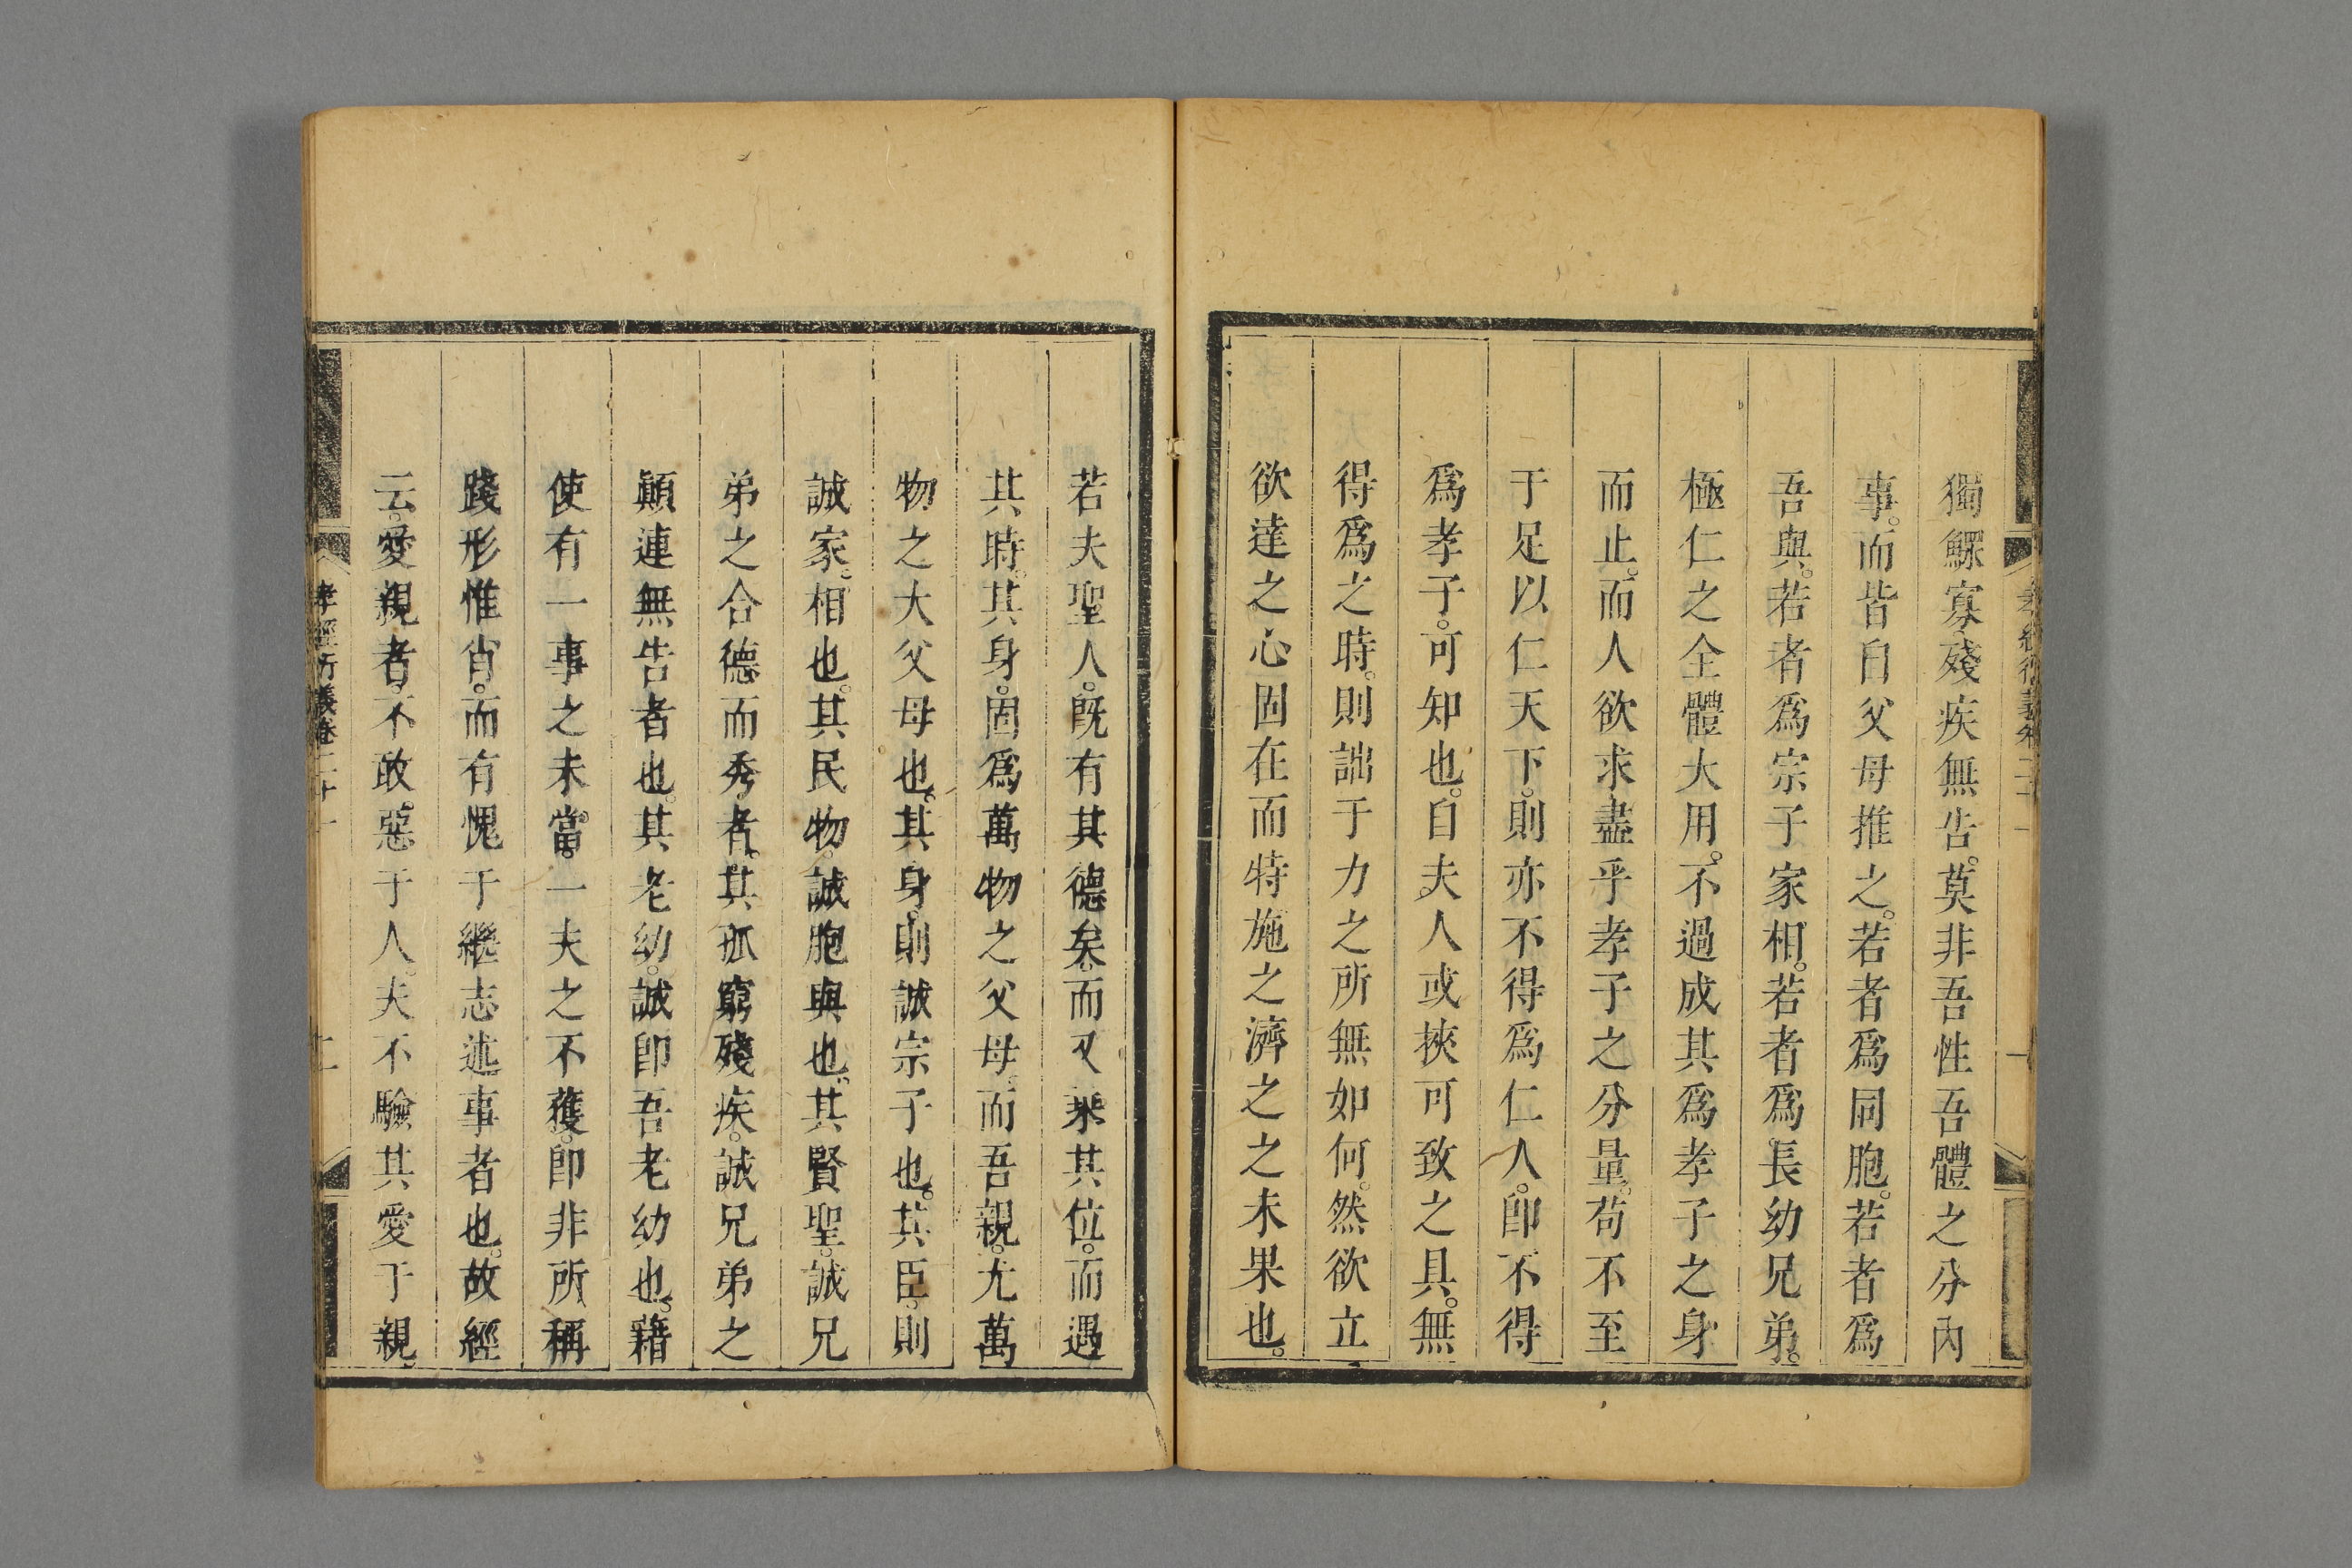 獨鰥寡殘疾無告。莫非吾性吾體之分內
事。而皆自父母推之。若者爲同胞。若者爲
吾與。若者爲宗子家相。若者爲長幼兄弟。
極仁之全體大用。不過成其爲孝子之身
而止。而人欲求盡乎孝子之分量。苟不至
于足以仁天下。則亦不得爲仁人。卽不得
爲孝子。可知也。自夫人或挾可致之具。無
得爲之時。則詘于力之所無如何。然欲立
欲達之心固在而特施之濟之之未果也。
若夫聖人。旣有其德矣。而又乘其位。而遇
其時。其身。固爲萬物之父母。而吾親。尤萬
物之大父母也。其身。則誠宗子也。其臣。則
誠家。相也。其民物。誠胞與也。其賢聖。誠兄
弟之合德而秀者。其孤窮殘疾。誠兄弟之
顚連無告者也。其老幼。誠卽吾老幼也。藉
使有一事之未當。一夫之不獲。卽非所稱
踐形惟肖。而有愧于繼志述事者也。故經
云。愛親者。不敢。惡于人。夫不驗其愛于親。
孝經衍義卷二十一
二